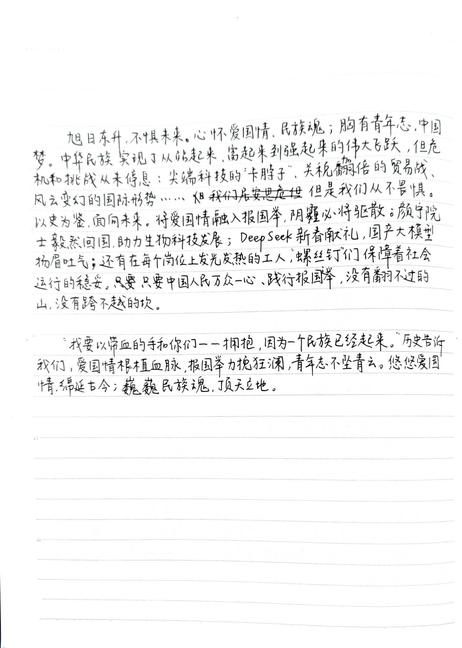 旭日东升，不惧未来。心怀爱国情、民族魂；胸有青年志，中国
梦。中华民族实现了从站起来、富起来到强起来的伟大飞跃，但危
机和挑战从未停息：尖端科技的“卡脖子”、关税翻倍的贸易战、
风云变幻的国际形势……但 我们居安思危坦 但是我们从不畏惧。
以史为鉴，面向未来。将爱国情融入报国举，阴霾必将驱散；颜宁院
士毅然回国，助力生物科技发展；DeepSeek新春献礼，国产大模型
扬眉吐气；还有在每个岗位上发光发热的工人，“螺丝钉”们保障着社会
运行的稳妥。只要 只要中国人民万众一心、践行报国举，没有翻不过的
山，没有跨不越的坎。
“我要以带血的手和你们一一拥抱，因为一个民族已经起来。”历史告诉
我们，爱国情根植血脉，报国举力挽狂澜，青年志不坠青云。悠悠爱国
情，绵延古今；巍巍民族魂，顶天立地。